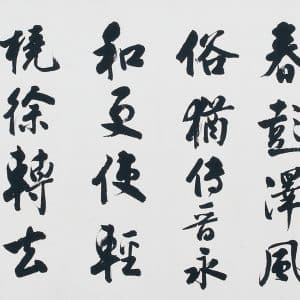 春彭澤風
俗猶传晋永
和更使輕
橈徐轉去